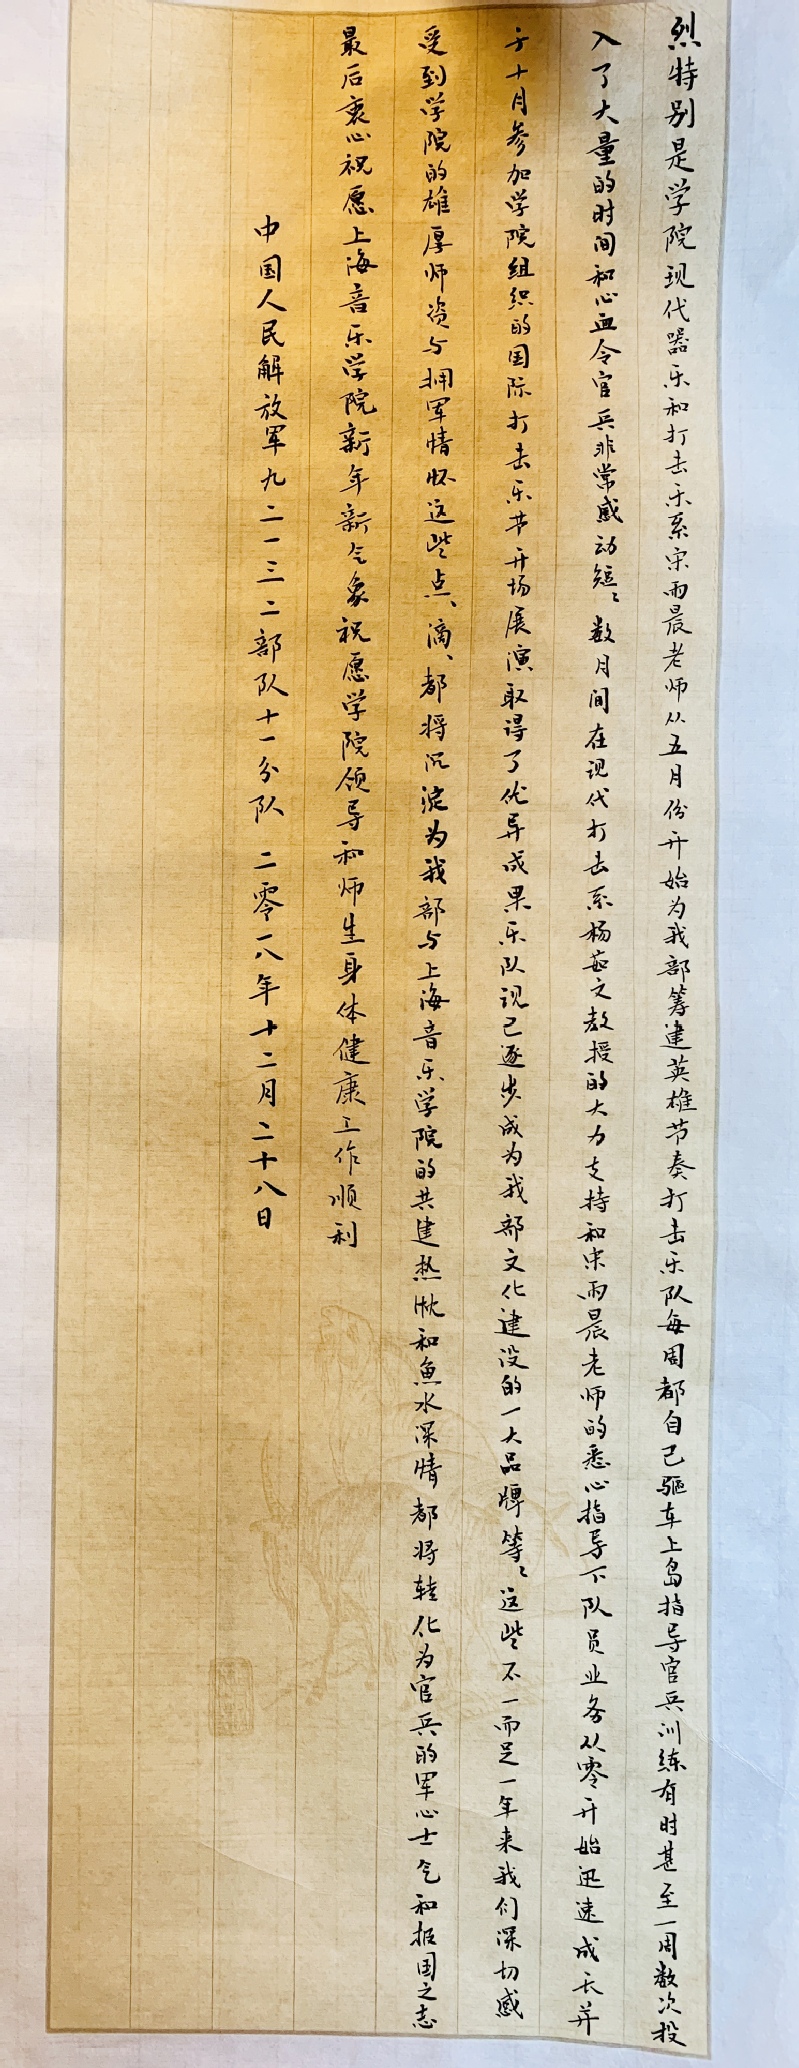 烈特别是学院现代器乐和打击乐系宋雨晨老师从五月份开始为我部筹建英雄节奏打击乐队每周都自己驱车上岛指导官兵训练有时甚至一周数次投
入了大量的时间和心血令官兵非常感动短〻数月间在现代打击系杨茹文教授的大力支持和宋雨晨老师的悉心指导下队员业务从零开始迅速成长并
于十月参加学院组织的国际打击乐节开场展演取得了优异成果乐队现已逐步成为我部文化建设的一大品牌等〻这些不一而足一年来我们深切感
受到学院的雄厚师资与拥军情怀这些点、滴、都将沉淀为我部与上海音乐学院的共建热忱和鱼水深情都将转化为官兵的军心士气和报国之志
最后衷心祝愿上海音乐学院新年新气象祝愿学院领导和师生身体健康工作顺利
中国人民解放军九二一三二部队十一分队 二零一八年十二月二十八日